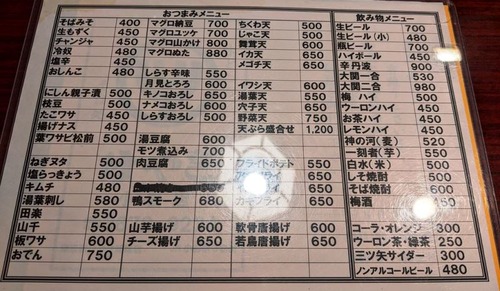 おつまみメニュー
そばみそ 400
生もずく 450
チャンジャ 450
冷奴 480
塩辛 450
おしんこ 480
にしん親子漬 500
枝豆 500
たこワサ 450
揚げナス 450
葉ワサビ松前 500
ねぎヌタ 500
塩らっきょう 500
キムチ 480
湯葉刺し 580
田楽 550
山千 550
板ワサ 600
おでん 750
マグロ納豆 700
マグロユッケ 700
マグロ山かけ 800
マグロぬた 880
しらす辛味 550
月見とろろ 600
キノコおろし 650
ナメコおろし 650
しらすおろし 500
湯豆腐 600
モツ煮込み 700
肉豆腐 650
鴨スモーク 680
山芋揚げ 600
チーズ揚げ 650
ちくわ天 500
じゃこ天 500
舞茸天 600
イカ天 600
メゴチ天 650
イワシ天 600
湯葉天 550
穴子天 650
野菜天 750
天ぷら盛合せ 1,200
フライドポテト 550
650
650
カキフライ 650
軟骨唐揚げ 600
若鳥唐揚げ 650
飲み物メニュー
生ビール 700
生ビール(小) 480
瓶ビール 700
ハイボール 450
辛丹波 900
大関一合 530
大関二合 980
梅ハイ 450
ウーロンハイ 450
お茶ハイ 450
レモンハイ 450
神の河(麦) 520
一刻者(芋) 550
白水(米) 500
しそ焼酎 500
そば焼酎 600
梅酒 450
コーラ・オレンジ 300
ウーロン茶・緑茶 250
三ツ矢サイダー 300
ノンアルコールビール 480